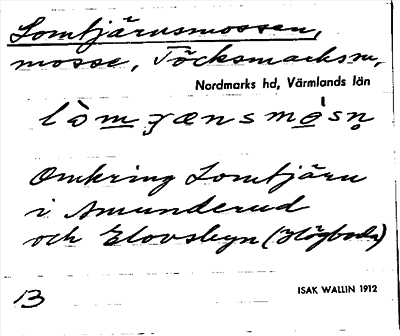 Lomtjärnsmossen,
mosse, Töcksmarks sn,
Nordmarks hd, Värmlands län
Omkring Lomtjärn
i Amunderud
och Elovsbyn (Högboda)
ISAK WALLIN 1912
B